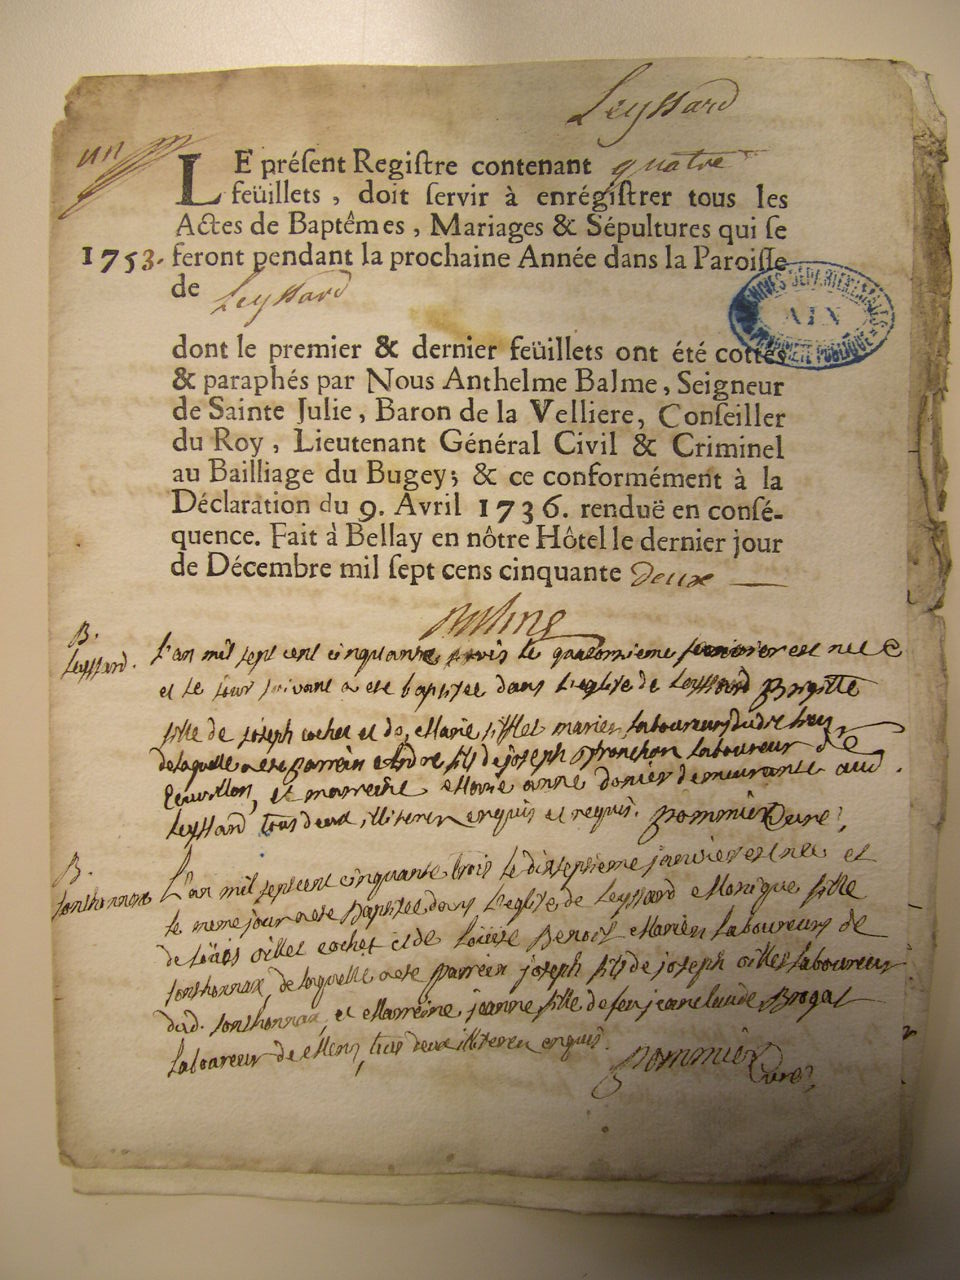 Leyssard
un
LE préſent Regiſtre contenant quatre
feüillets, doit ſervir à enrégiſtrer tous les
Actes de Baptêmes, Mariages & Sépultures qui ſe
1753. feront pendant la prochaine Année dans la Paroiſſe
de Leyssard
ARCHIVES DÉPARTEMENTALES
AIN
PROPRIÉTÉ PUBLIQUE
dont le premier & dernier feüillets ont été cottés
& paraphés par Nous Anthelme Balme, Seigneur
de Sainte Julie, Baron de la Velliere, Conſeiller
du Roy, Lieutenant Général Civil & Criminel
au Bailliage du Bugey; & ce conformément à la
Déclaration du 9. Avril 1736. renduë en conſé-
quence. Fait à Bellay en nôtre Hôtel le dernier jour
de Décembre mil ſept cens cinquante deux
B.
Leyssard.
L'an mil sept cent cinquante trois le quatorzieme janvier est nee
et le jour suivant a ete baptisee dans l'eglise de Leyssard Brigitte
fille de joseph cochet et de Marie mariez laboureurs dudit lieu
de laquelle a ete parrein Andre fils de joseph laboureur de
et marreine Marie anne demeurante aud.
Leyssard tous deux illiterez enquis et requis. pommier Curé
B.
L'an mil sept cent cinquante trois le dixseptieme janvier est nee et
le meme jour a ete Baptisee dans l'eglise de Leyssard Monique fille
de Loüis cochet et de Loüise Benoit Mariez laboureurs de
de laquelle a ete parrein joseph fils de joseph laboureur
dud. et Marreine jeanne fille de feu jean claude
laboureur de tous deux illiterez enquis.
pommier
Curé